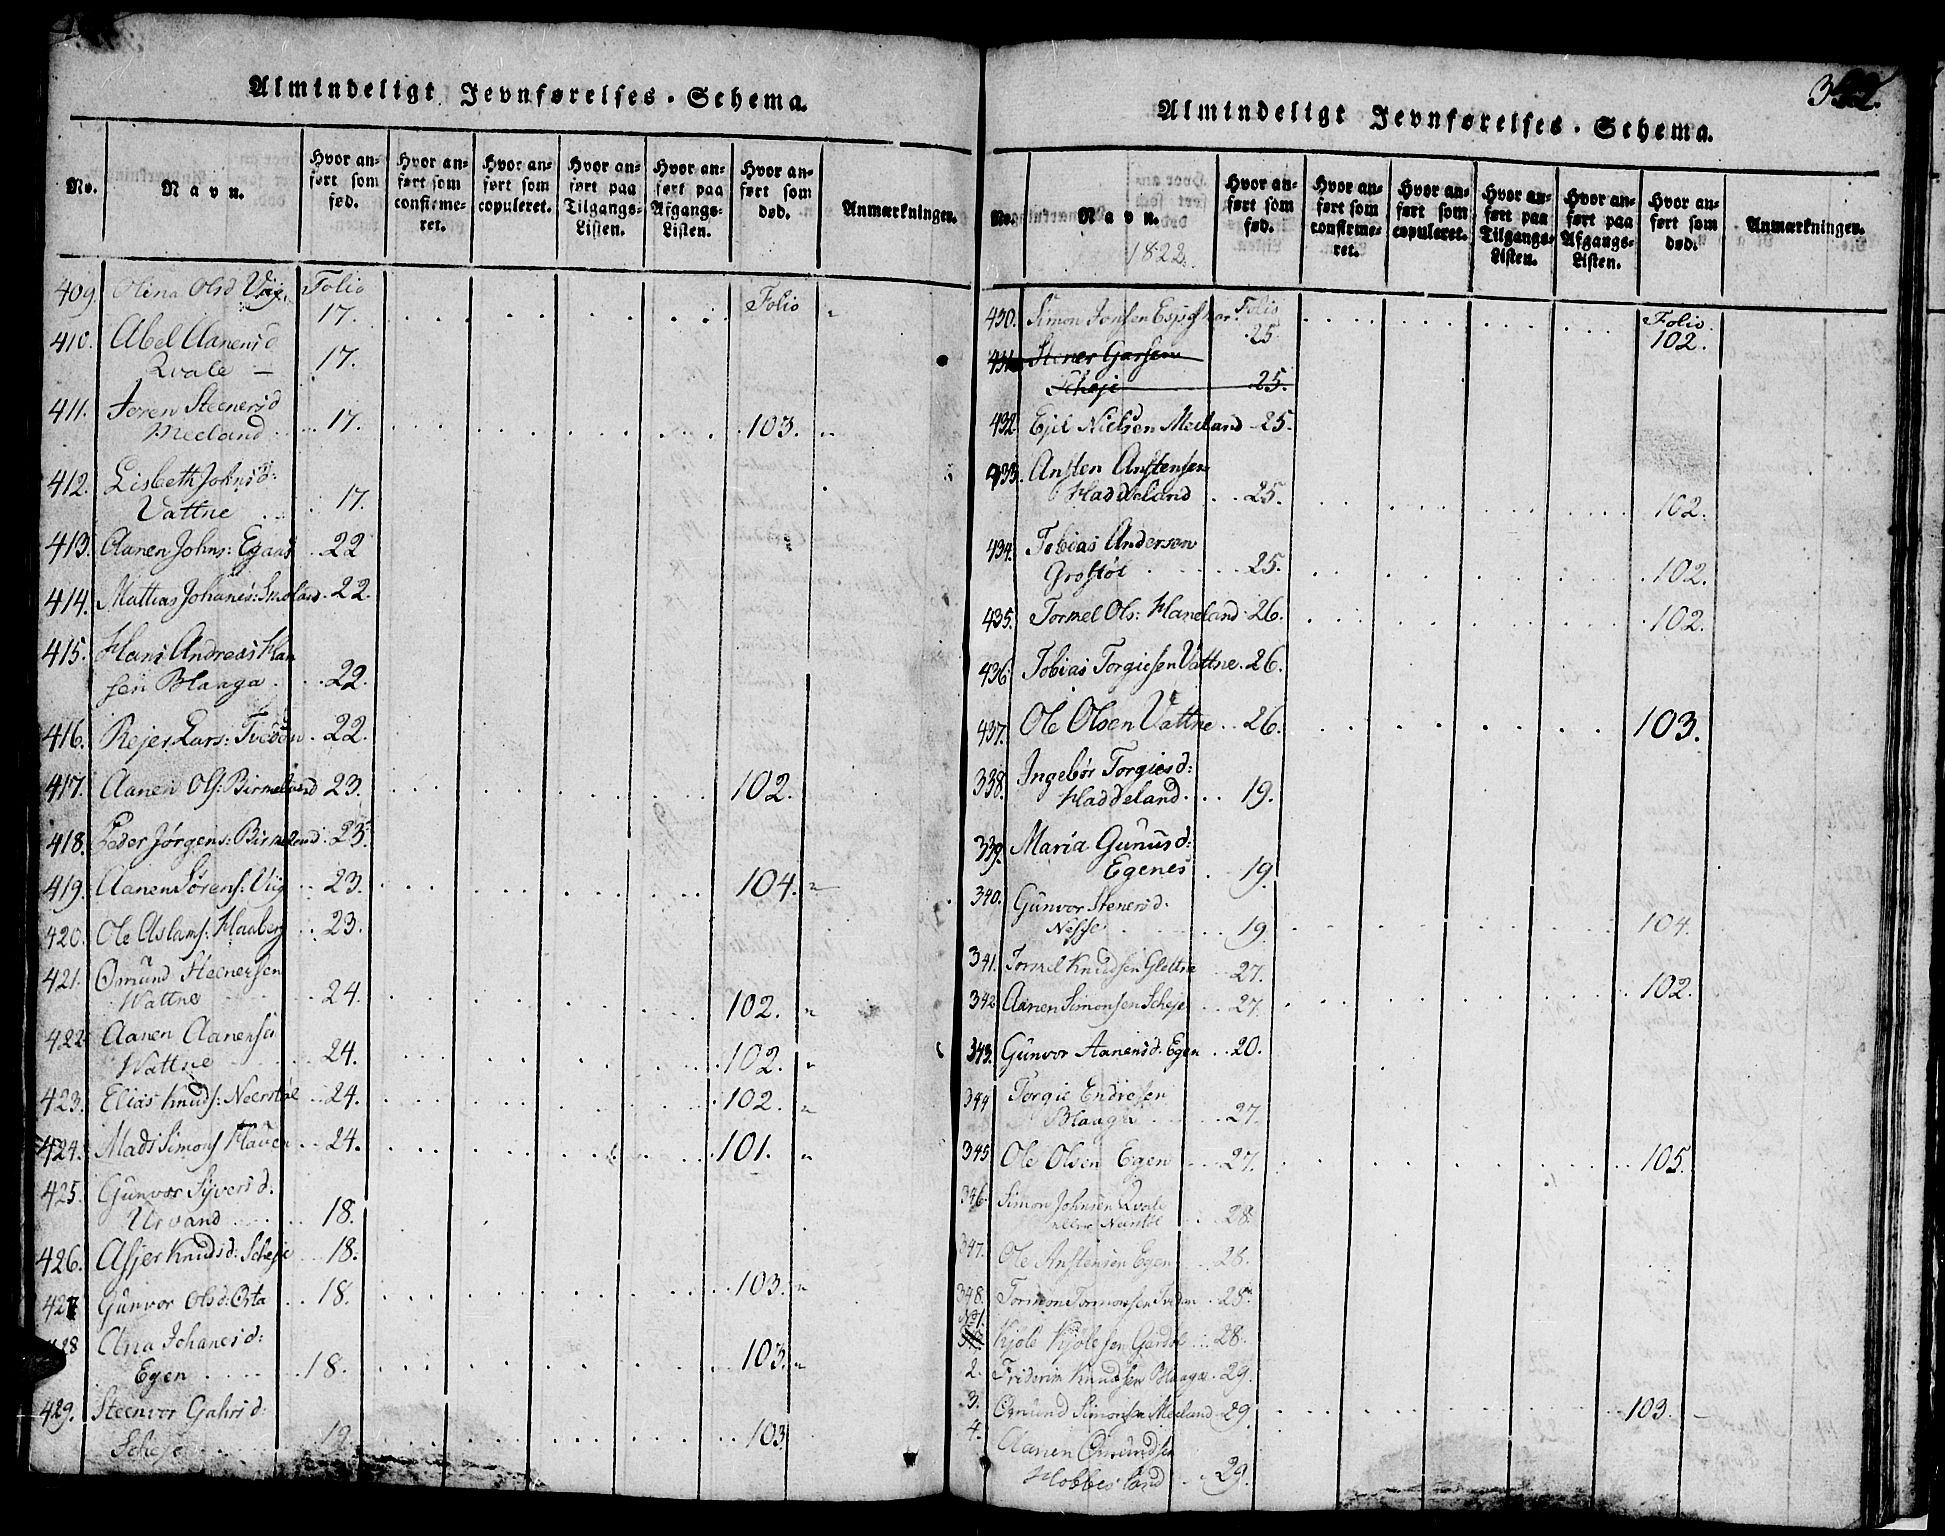 Almindeligt Jevnførelses-Schema.
No.
Navn.
Hvor anført som fød.
Hvor anført som confirmeret.
Hvor anført som copuleret.
Hvor anført paa Tilgangs-Listen.
Hvor anført paa Afgangs-Listen.
Hvor anført som død.
Anmærkninger.
409. Olina Olsd Viig. Folio 17. Folio "
410. Abel Aanensd
Qvale — 17.
411. Joren Steenersd
Meeland 17. 103. "
412. Lisbeth Johnsd:
Vattne 17.
413. Aanen Johns: Egaas 22
414. Mattias Johanes: 22.
415. Hans Andreas Han
sen Blaaga 22.
416. Rejer Lars: 22.
417. Aanen Ols: Birmeland 23. 102.
418. Peder Jørgens: Birkeland 23.
419. Aanen Sørens: Viig 23. 104. "
420. Ole Aslams: Haaberg 23.
421. Omund Steenersen
Wattne 24. 102. "
422. Aanen Aanensen
Wattne 24. 102. "
423. Elias Knuds: Neerstøl 24. 102. "
424. Mads Simons Hauen 24. 101. "
425. Gunvor Syversd.
Urvand 18.
426. Asjer Knudsd: Scheje 18.
427 Gunvor Olsd: Osta 18. 103. "
428 Ana Johanesd:
Egen 18. 103. "
429. Steenvor Gahrsd:
Scheje 19 103
Almindeligt Jevnførelses-Schema.
No.
Navn.
1822.
Hvor anført som fød.
Hvor anført som confirmeret.
Hvor anført som copuleret.
Hvor anført paa Tilgangs-Listen.
Hvor anført paa Afgangs-Listen.
Hvor anført som død.
Anmærkninger.
430. Simon Jonsen Folio 25 Folio 102.
431 Stener Garsen
Scheje 25.
432 Ejel Nielsen Meeland 25.
433. Ansten Anstensen
Haddeland 25. 102.
434. Tobias Anderson
Grostøl 25. 102.
435. Tormel Ols: Haneland 26. 102.
436. Tobias Torgiesen Vattne 26.
437. Ole Olsen Vattne 26. 103.
338. Ingebor Torgiesd:
Haddeland 19.
339. Maria Gunusd:
Egenes 19.
340. Gunvor Stenersd.
Nesse 19. 104.
341. Tormel Knudsen Glettne 27.
342 Aanen Simonsen Scheje 27. 102.
343. Gunvor Aanensd. Egen 20.
344 Torgie Endresen
Blaaga 27.
345 Ole Olsen Egen 27. 105.
346. Simon Johnsen Qvale
eller 28.
347. Ole Anstensen Egen 28.
348. Tormon Tormonsen 28.
No 1. Kjøle Kjølesen 28.
2. Friderik Knudsen Blaaga 29.
3. Omund Simonsen Meeland 29. 103. —
4. Aanen Omundsen
Hobbesland 29.